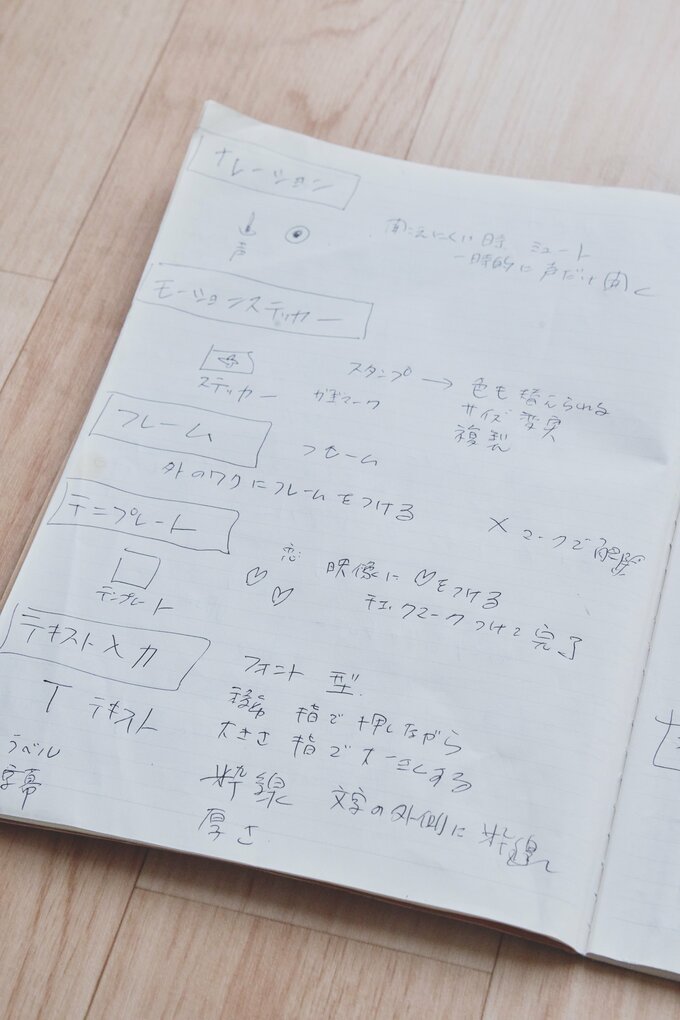 ナレーション
声
聞こえにくい時 ミュート
一時的に声だけ聞く
モーションステッカー
ステッカー
スタンプ → 色も替えられる
サイズ変更
複製
フレーム
フレーム
外のワクにフレームをつける
×マークで解除
テンプレート
テンプレート
恋 映像に♡をつける
♡♡
チェックマークつけて完了
テキスト入力
T テキスト
フォント 型
移動 指で押しながら
大きさ 指で大きくする
ラベル
字幕
枠線 文字の外側に枠線
厚さ